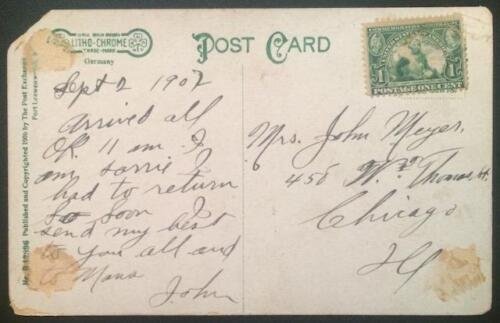 LITHO-CHROME
TRADE-MARK
Germany
POST CARD
1 1
POSTAGE ONE CENT
Published and Copyrighted 1906 by The Post Exchange
Fort Leavenworth
Sept 2 1907
Arrived all
OK 11 am I
am sorrie I
had to return
so soon I
send my best
to you all and
to Mana
John
Mrs. John Meyer,
456 W. Thomas st.
Chicago
Ill